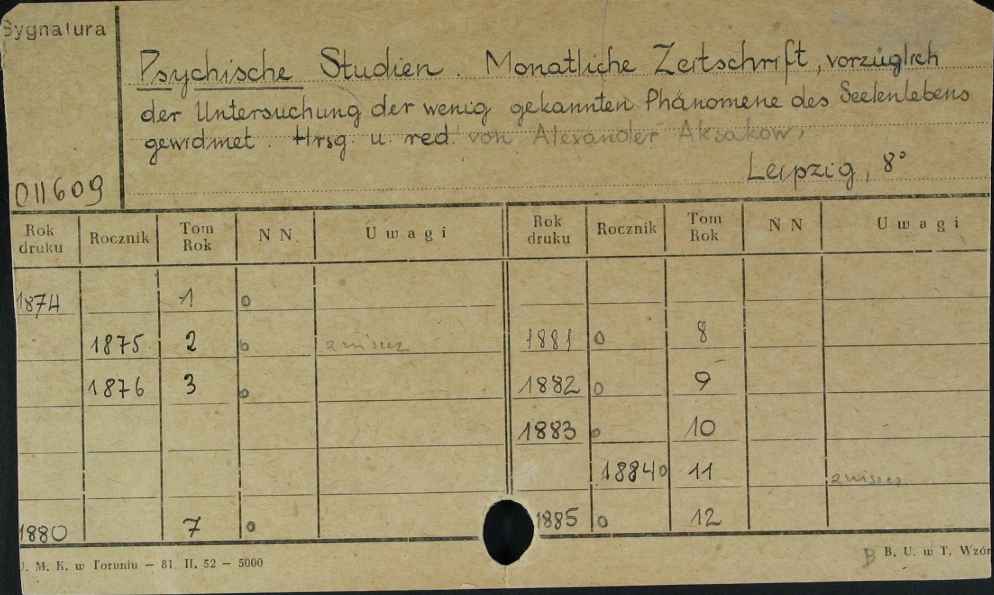 Sygnatura
Psychische Studien. Monatliche Zeitschrift, vorzüglich
der Untersuchung der wenig gekannten Phänomene des Seelenlebens
gewidmet. Hrsg. u. red. von Alexander Aksakow,
Leipzig, 8°
011609
Rok druku Rocznik Tom Rok N N Uwagi Rok druku Rocznik Tom Rok N N Uwagi
1874 1 o
1875 2 o 1881 o 8
1876 3 o 1882 o 9
1883 o 10
1884 o 11
1880 7 o 1885 o 12
. M. K. w Toruniu — 81 II. 52 — 5000
B B. U. w T. Wzór